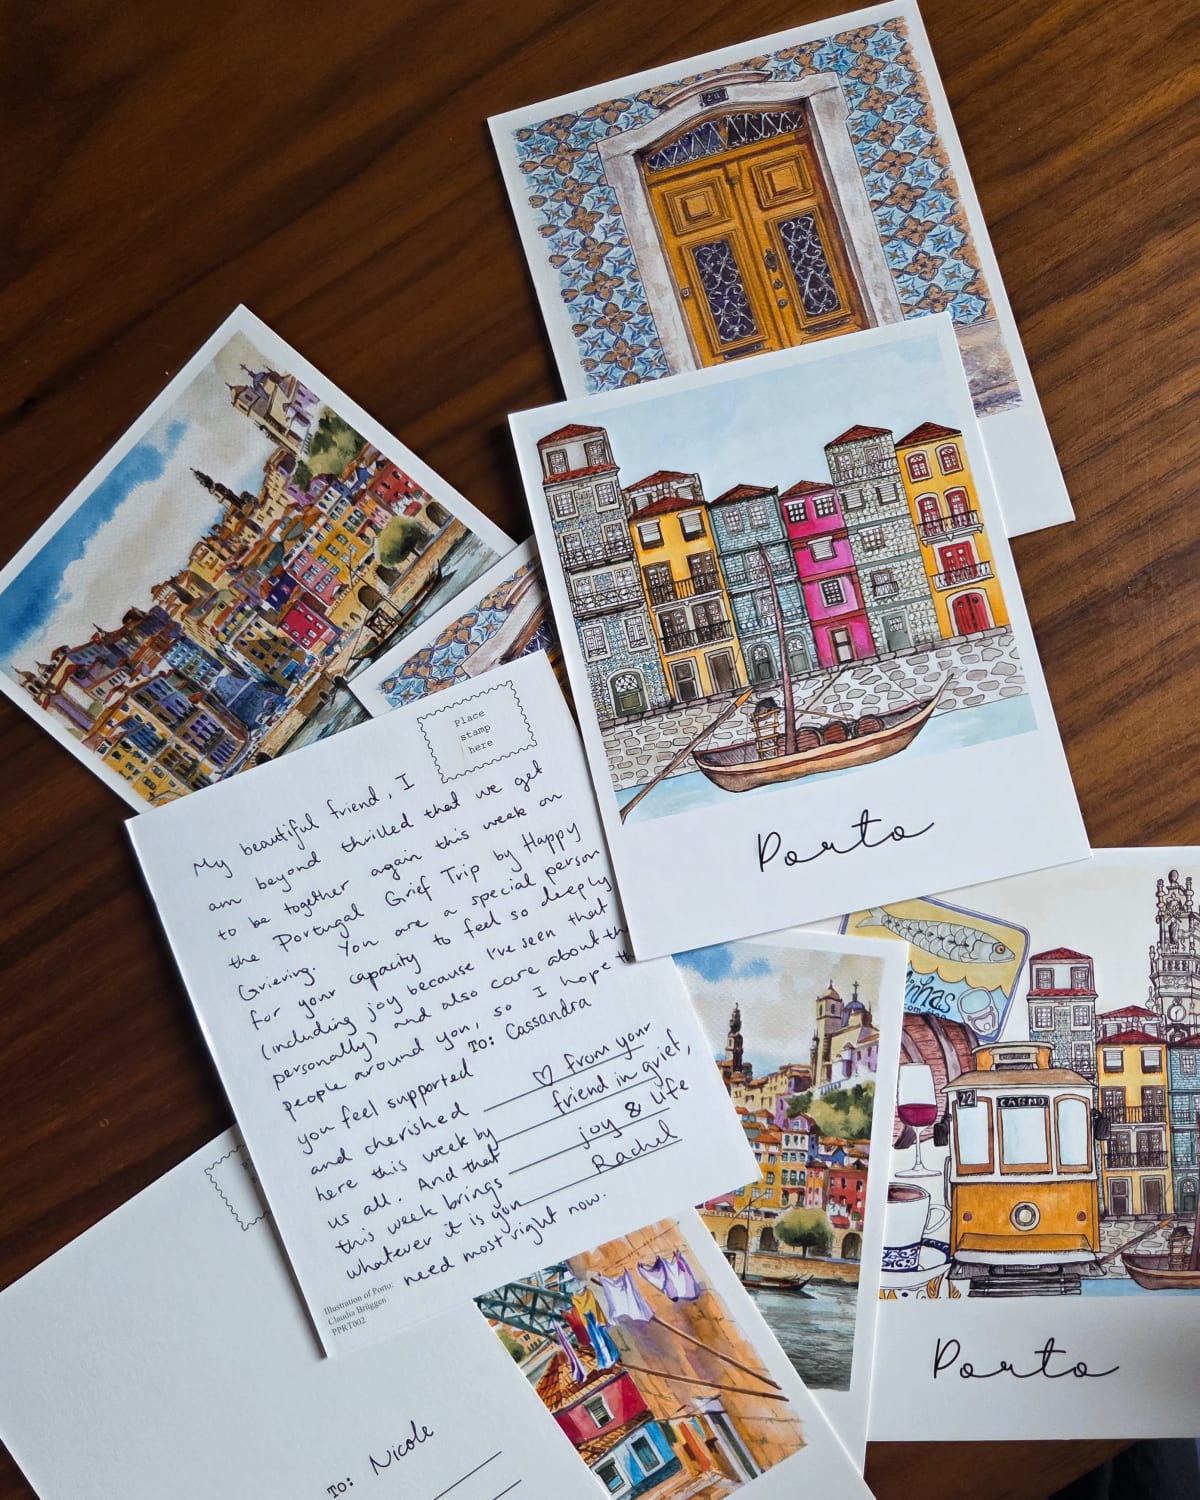 Place
stamp
here
My beautiful friend, I
am beyond thrilled that we get
to be together again this week on
the Portugal Grief Trip by Happy
Grieving. You are a special person
for your capacity to feel so deeply
(including joy because I've seen that
personally) and also care about th
people around you, so I hope th
you feel supported
and cherished
here this week by
us all. And that
this week brings
whatever it is you
need most right now.
To: Cassandra
♡ from your
friend in grief,
joy & life
Rachel
Illustration of Porto:
Claudia Brüggen
PPRT002
To: Nicole
Porto
inhas
22
CARMO
Porto